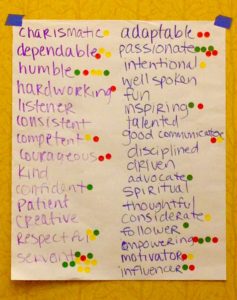 charismatic
dependable
humble
hardworking
listener
consistent
competent
courageous
kind
confident
patient
creative
respectful
servent
adaptable
passionate
intentional
well spoken
fun
inspiring
talented
good communicater
disciplined
driven
advocate
spiritual
thoughtful
considerate
follower
empowering
motivator
influencer